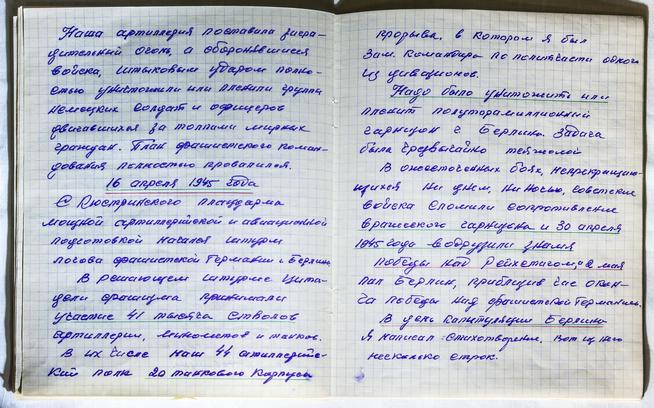 Наша артиллерия поставила загра-
дительный огонь, а оборонявшиеся
войска, штыковым ударом полно-
стью уничтожили или пленили группы
немецких солдат и офицеров
двигавшихся за толпами мирных
граждан. План фашистского коман-
дования полностью провалился.
16 апреля 1945 года
С Кюстринского плацдарма
мощной артиллерийской и авиационной
подготовкой начался штурм
логова фашистской Германии г. Берлина
В решающем штурме цита-
дели фашизма принимали
участие 41 тысяча стволов
артиллерии, минометов и танков.
В их числе наш 44 артиллерийс-
кий полк 20 танкового корпуса
прорыва, в котором я был
Зам. командира по политчасти одного
из дивизионов.
Надо было уничтожить или
пленить полуторамиллионный
гарнизон г. Берлина. Задача
была чрезвычайно тяжелой
В ожесточенных боях, непрекращаю-
щихся ни днем, ни ночью, советские
войска сломили сопротивление
вражеского гарнизона и 30 апреля
1945 года водрузили знамя
Победы над Рейхстагом, а 2 мая
пал Берлин, приблизив час
победы над фашистской Германией.
В день капитуляции Берлина
я написал стихотворение. Вот из него
несколько строк.